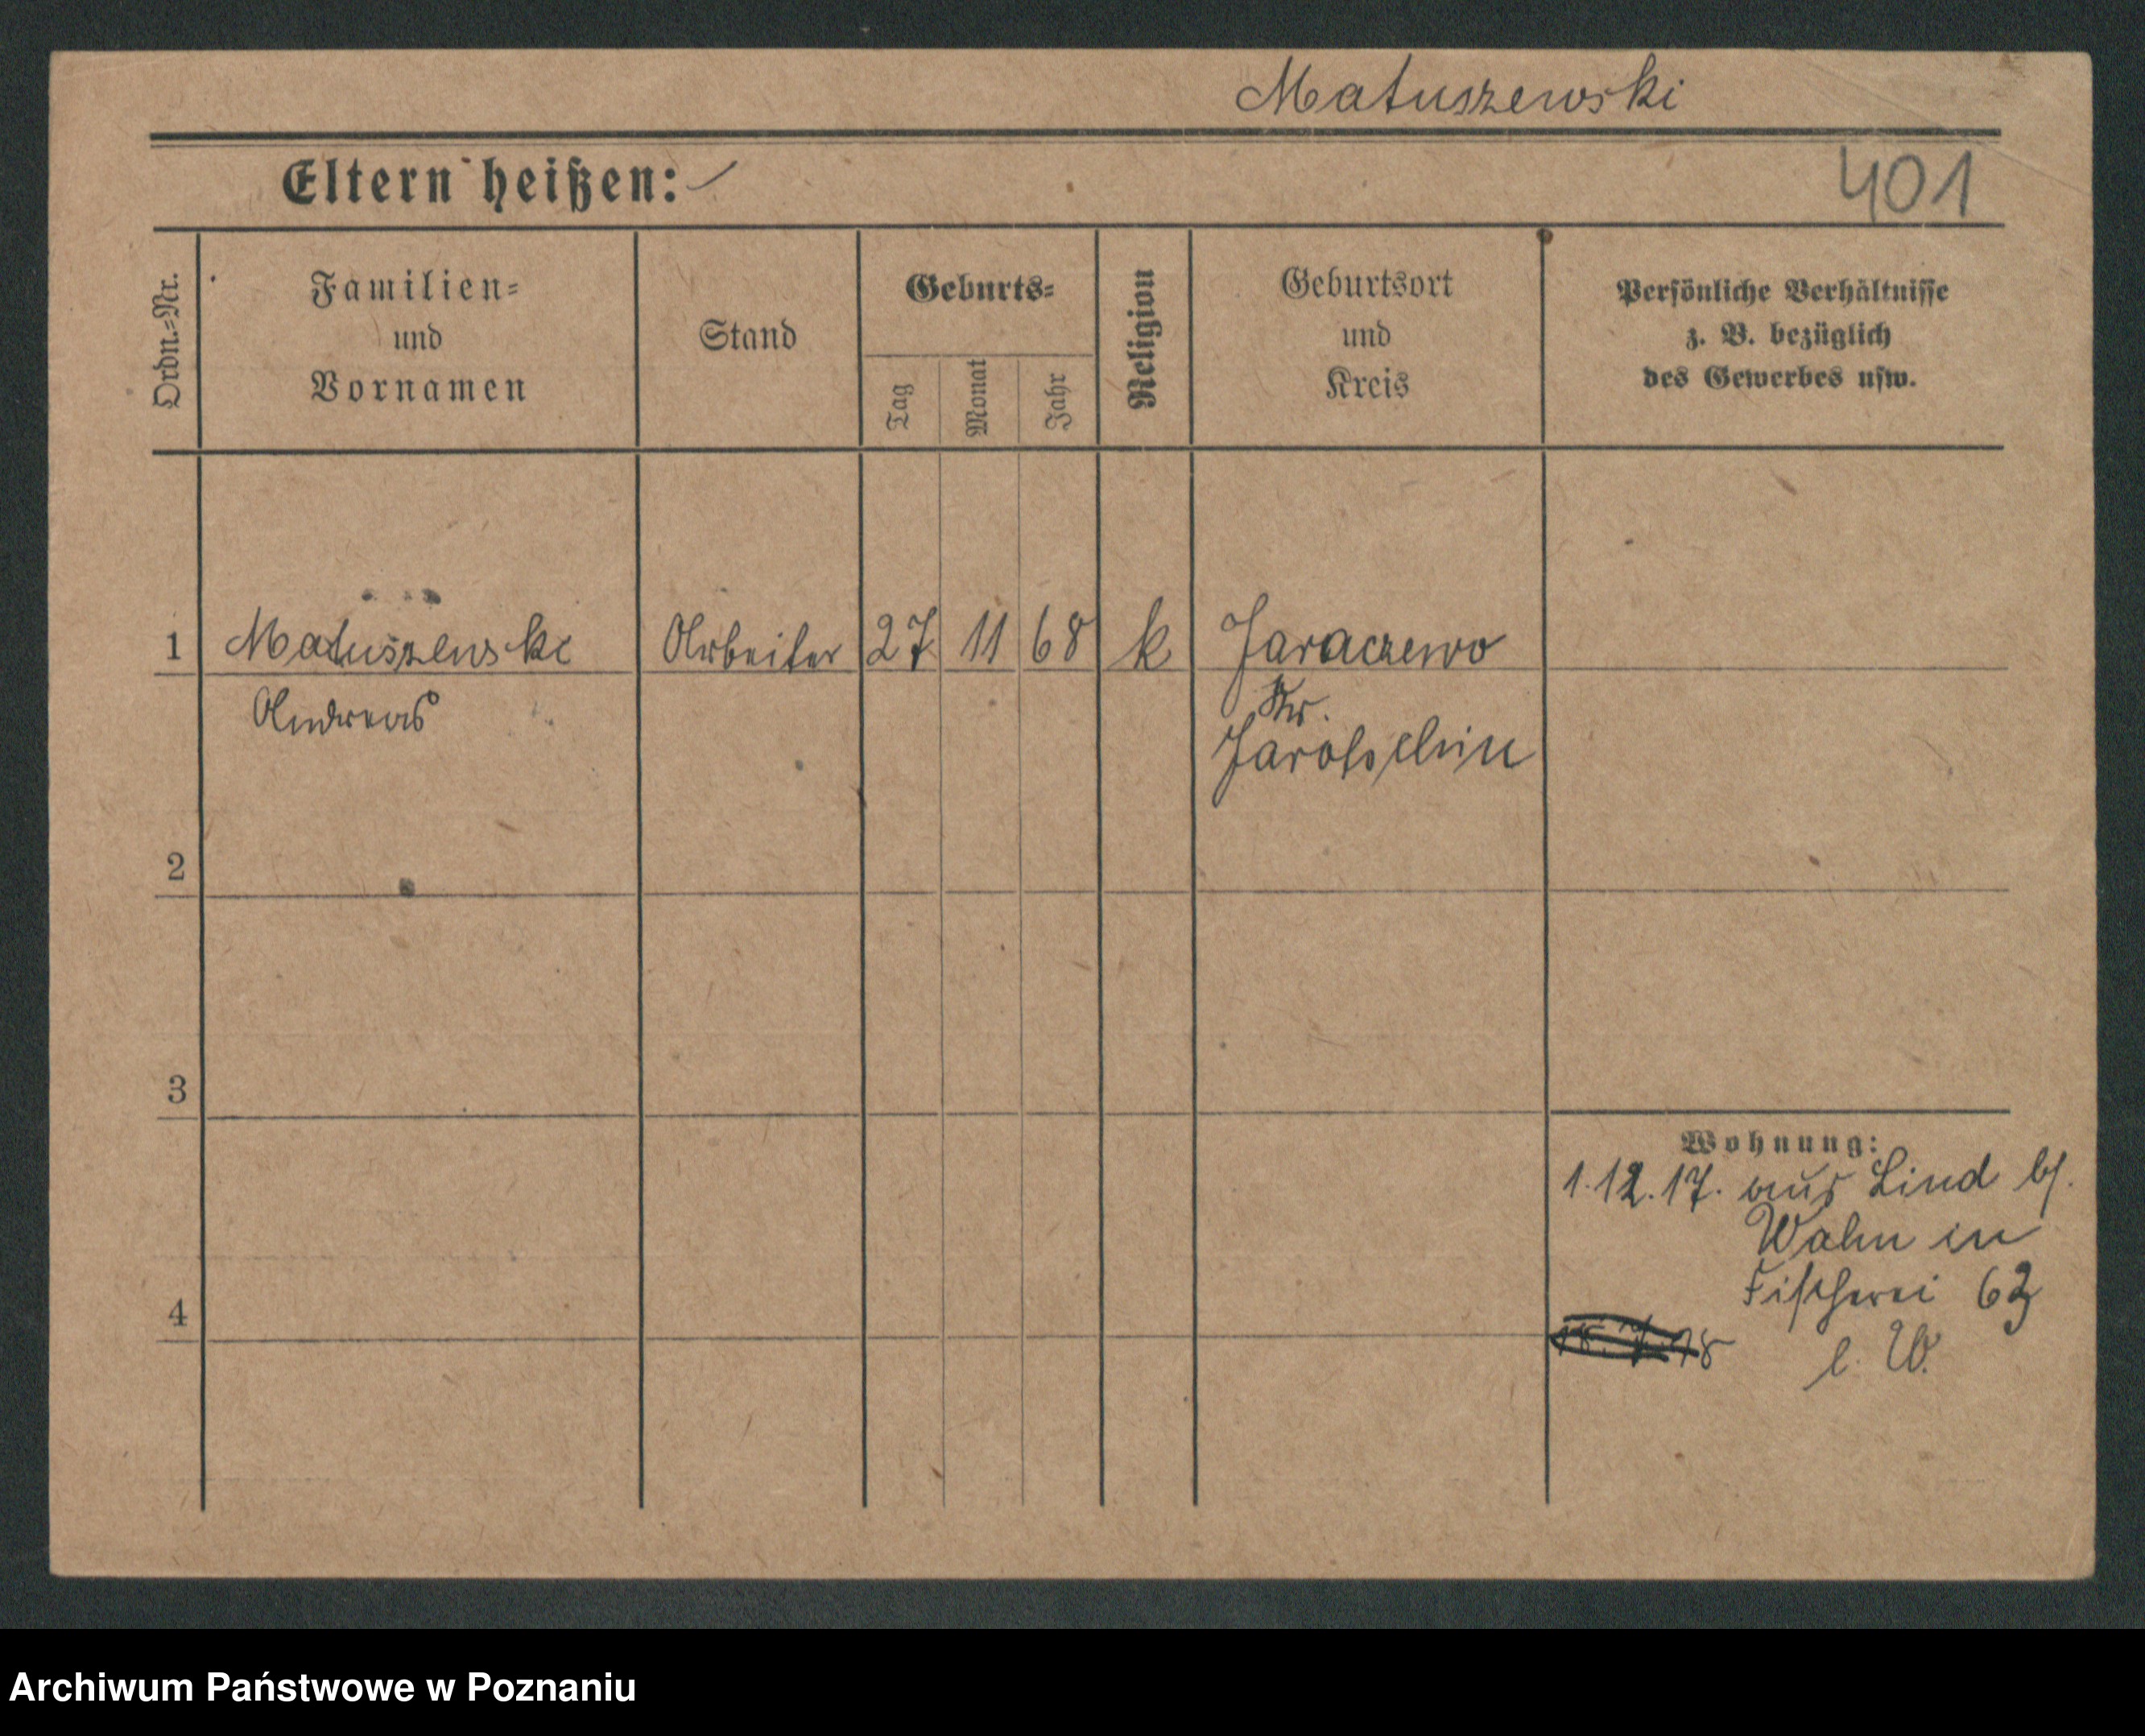 Matuszewski
Eltern heißen:
401
Ordn.-Nr.
Familien-
und
Vornamen
Stand
Geburts-
Tag
Monat
Jahr
Religion
Geburtsort
und
Kreis
Persönliche Verhältnisse
z. B. bezüglich
des Gewerbes usw.
1 Matuszewski Arbeiter 27 11 68 k Jaraczewo
Andreas Kr.
Jarotschin
2
3
Wohnung:
1.12.17. aus Lind b/.
Wahn in
Fischerei 63
4
18 l. W.
Archiwum Państwowe w Poznaniu